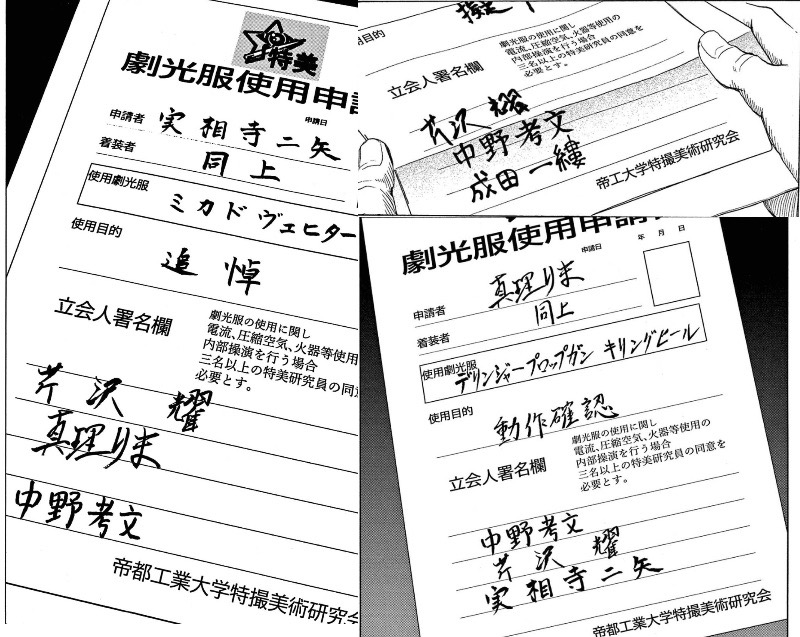 特美
劇光服使用申請
申請者 実相寺二矢 申請日
着装者 同上
使用劇光服 ミカドヴェヒター
使用目的 追悼
立会人署名欄
劇光服の使用に関し
電流、圧縮空気、火器等使用
内部操演を行う場合
三名以上の特美研究員の同意
必要とす。
芹沢 耀
真理りま
中野考文
帝都工業大学特撮美術研究会
用目的
立会人署名欄
劇光服の使用に関し
電流、圧縮空気、火器等使用の
内部操演を行う場合
三名以上の特美研究員の同意を
必要とす。
芹沢 耀
中野考文
成田一縷
帝工大学特撮美術研究会
劇光服使用申請
申請日 年 月 日
申請者 真理りま
着装者 同上
使用劇光服 デリンジャープロップガン キリングビール
使用目的 動作確認
立会人署名欄
劇光服の使用に関し
電流、圧縮空気、火器等使用の
内部操演を行う場合
三名以上の特美研究員の同意を
必要とす。
中野考文
芹沢 耀
実相寺二矢
帝都工業大学特撮美術研究会